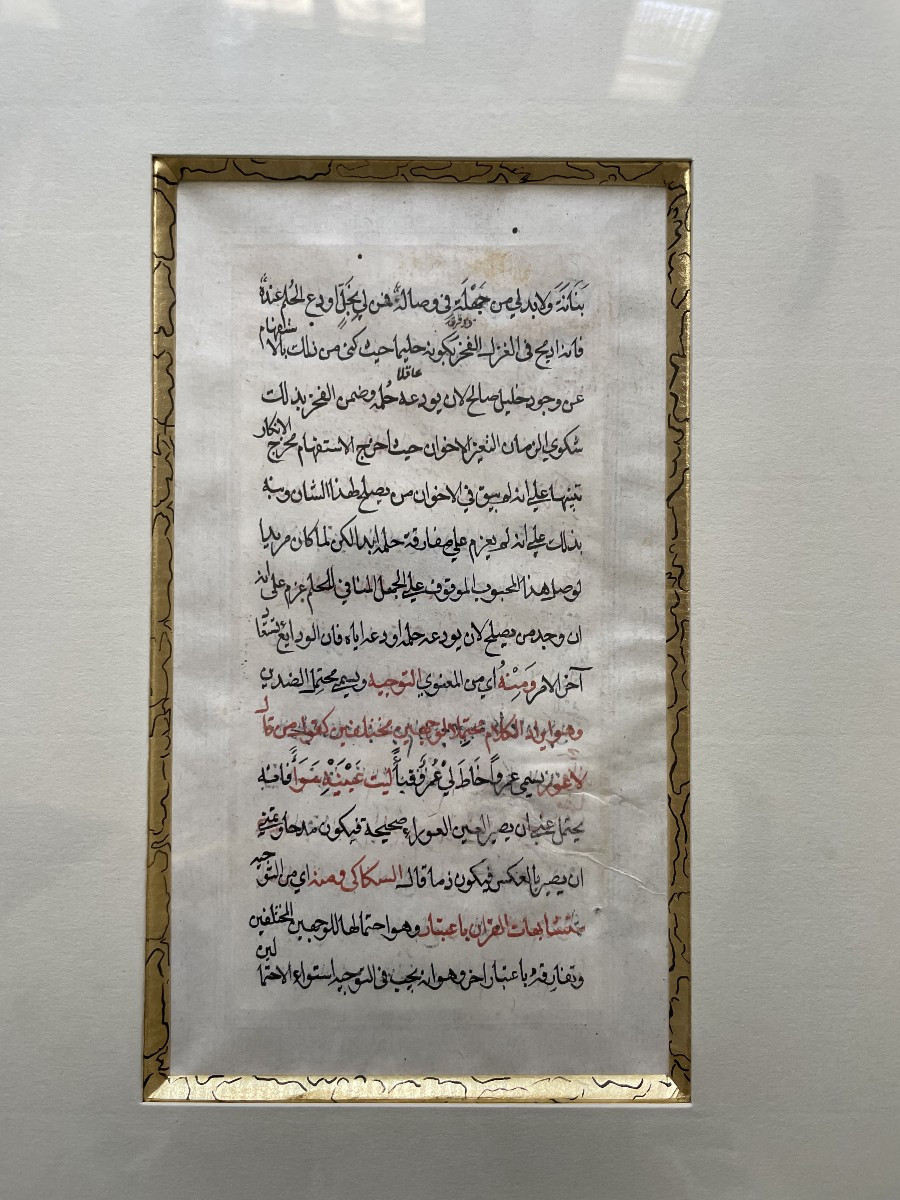 بنانة ولابد لي من جهلة في وصاله فمن لي بخل اودع الحلم عنده
فانه ادمج في الغزل الفخر بكونه حليما حيث كنى من ذلك بالاستفهام
عن وجود خليل صالح لان يودعه حلمه وضمن الفخر بذلك
عاقلا
شكوي الزمان التغير الاخوان حيث اخرج الاستفهام مخرج الانكار
تنبيها علي انه لم يبق في الاخوان من يصلح لهذا الشان ونبه
بذلك علي انه لم يعزم علي مفارقة حلمه ابدا لكن لما كان مريدا
لوصل هذا المحبوب الموقوف علي الجهل المنافي للحلم عزم على انه
ان وجد من يصلح لان يودعه حلمه اودعه اياه فان الودايع تستعاد
آخر الامر ومنه اي من المعنوي التوجيه ويسمي محتمل الضدين
وهو ايراد الكلام محتملا لوجهين مختلفين كقول من قال
لاعور يسمي عمروا خاط لي عمرو قبا ليت عينيه سوا فانه
يحتمل عني ان يصير العين العوراء صحيحة فيكون مدحا وعني
ان يصير بالعكس فيكون ذما قال السكاكي ومنه اي من التوجيه
متشابهات القران باعتبار وهو احتمالها للوجهين المختلفين
وتفارقه باعتبار اخر وهو انه يجب في التوجيه استواء الاحتمالين